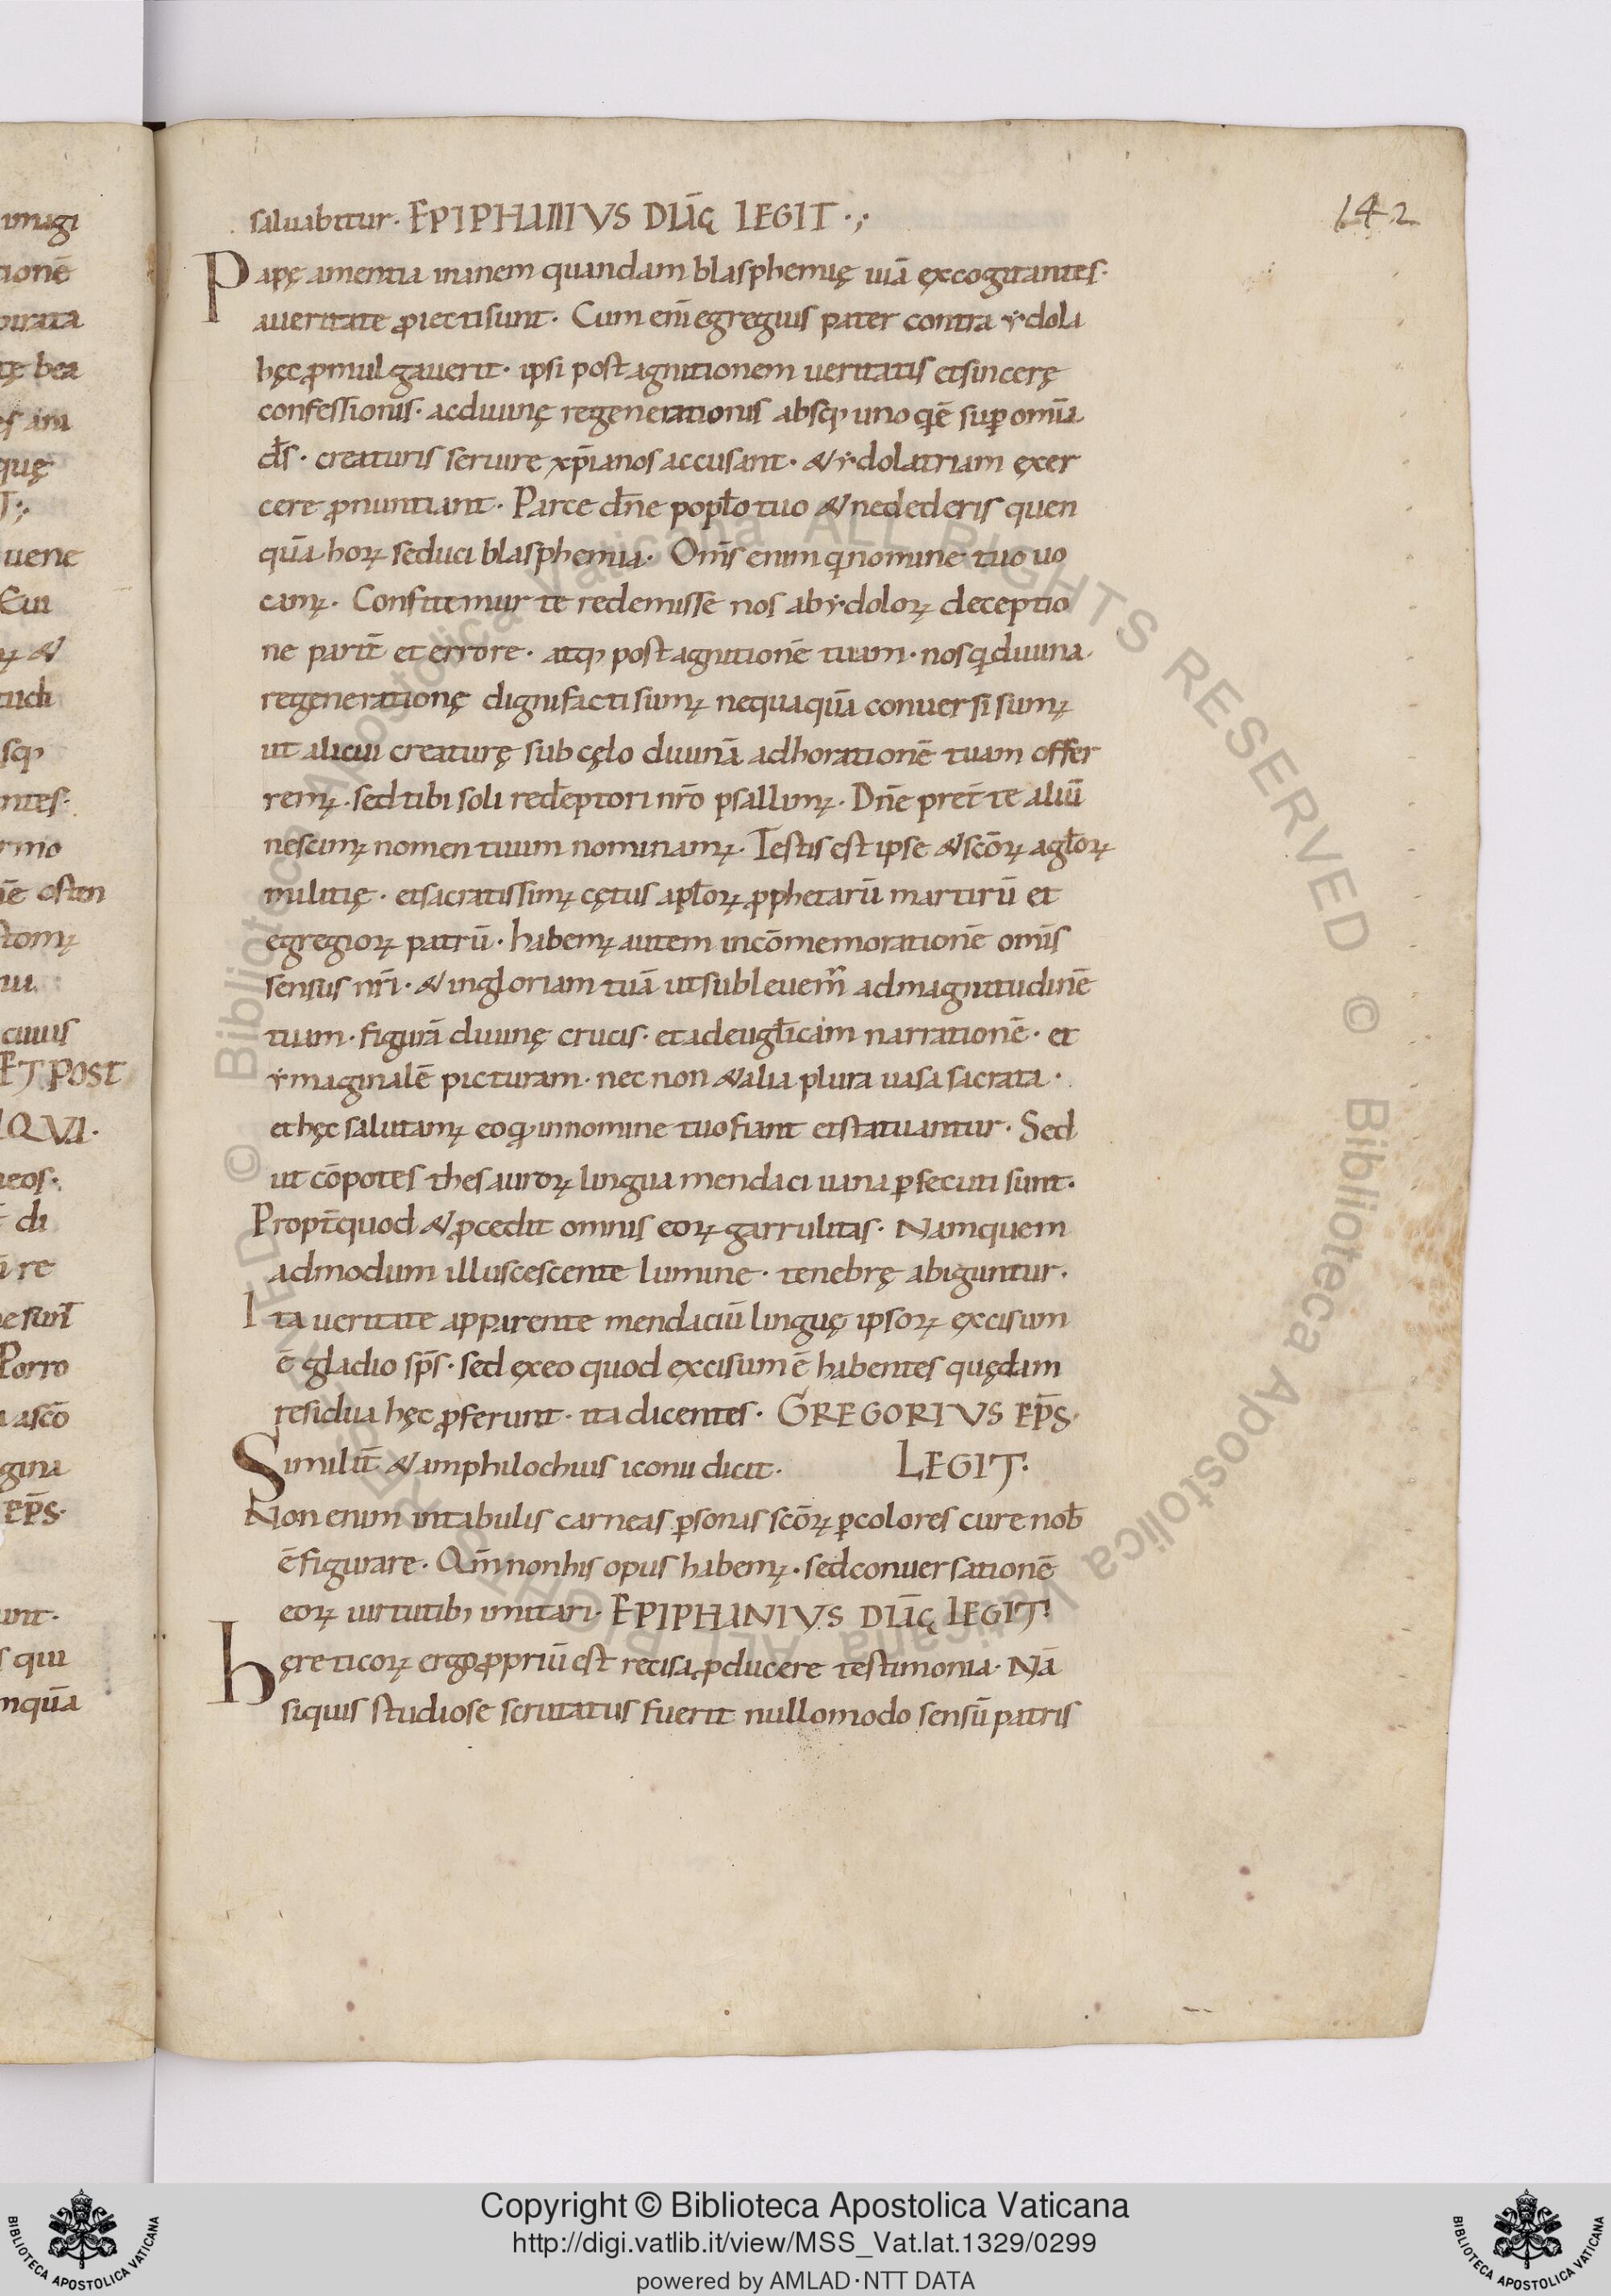 142
saluabitur · EPIPHANIVS DIAC̄ LEGIT ·;
Papę amentia inanem quandam blasphemię uiā excogitantes ·
aueritate ꝓiecti sunt · Cum eni̅ egregius pater contra ydola
hęc ꝓmulgauerit · ipsi post agnitionem ueritatis et sincerę
confessionis · ac diuinę regenerationis absq; uno qi ē sup̱ omīa
d̅s · creaturis seruire xp̅ianos accusant · & ydolatriam exer
cere ꝓnuntiant · Parce dn̅e popl̅o tuo & ne dederis quen
quā hoꝝ seduci blasphemia · Om̅s enim qi nomine tuo uo
camꝰ · Confitemur te redemisse nos ab ydoloꝝ deceptio
ne parit̅ et errore · atq; post agnitionē tuam · nos qi diuina
regenerationę digni facti sumꝰ nequaquā conuersi sumꝰ
ut alicui creaturę sub cęlo diuinā adhorationē tuam offer
remꝰ · sed tibi soli redēptori nr̅o psallimꝰ · Dn̅e pret̅ te aliū
nescimꝰ nomen tuum nominamꝰ · Testis est ipse & sc̅oꝝ agl̅oꝝ
militię · et sacratissimꝰ cętus apl̅oꝝ ꝓphetarū martirū et
egregioꝝ patrū · habemꝰ autem in cōmemorationē omīs
sensus nr̅i · & in gloriam tuā ut subleuem̅ ad magnitudinē
tuam · figurā diuinę crucis · et ad eugl̅icam narrationē · et
ymaginalē picturam · nec non & alia plura uasa sacrata ·
et hęc salutamꝰ eo qd in nomine tuo fiant et statuantur · Sed
ut cōpotes thesauroꝝ lingua mendaci uana ꝑsecuti sunt ·
Propt̅ quod & ꝓcedit omnis eoꝝ garrulitas · Nam quem
admodum illuscescente lumine · tenebrę abiguntur ·
Ita ueritate apparente mendaciū linguę ipsoꝝ excisum
ē gladio sp̅s · sed ex eo quod excisum ē habentes quędam
residua hęc ꝓferunt · ita dicentes · GREGORIVS EP̅S ·
Similit̅ & amphilochius iconii dicit · LEGIT ·
Non enim in tabulis carneas ꝑsonas sc̅oꝝ ꝑ colores cure nob̅
ē figurare · Qm̅ non his opus habemꝰ · sed conuersationē
eoꝝ uirtutib; imitari · EPIPHANIVS DIAC̄ LEGIT ·
hęreticoꝝ ergo ꝓpriū est recisa ꝓducere testimonia · Nā
siquis studiose scrutatus fuerit nullo modo sensū patris
imagi
tionē
pirata
tę bea
quę
uene
Eui
ꝝ &
tudi
sq;
ntes ·
rmo
osten
cuius
ET POST
QVA ·
di
re
Porro
a sc̅o
gina
EP̅S ·
unt ·
qui
nquā
© Biblioteca Apostolica Vaticana ALL RIGHTS RESERVED © Biblioteca Apostolica Vaticana ALL RIGHTS RESERVED
BIBLIOTECA APOSTOLICA VATICANA
Copyright © Biblioteca Apostolica Vaticana
http://digi.vatlib.it/view/MSS_Vat.lat.1329/0299
powered by AMLAD·NTT DATA
BIBLIOTECA APOSTOLICA VATICANA